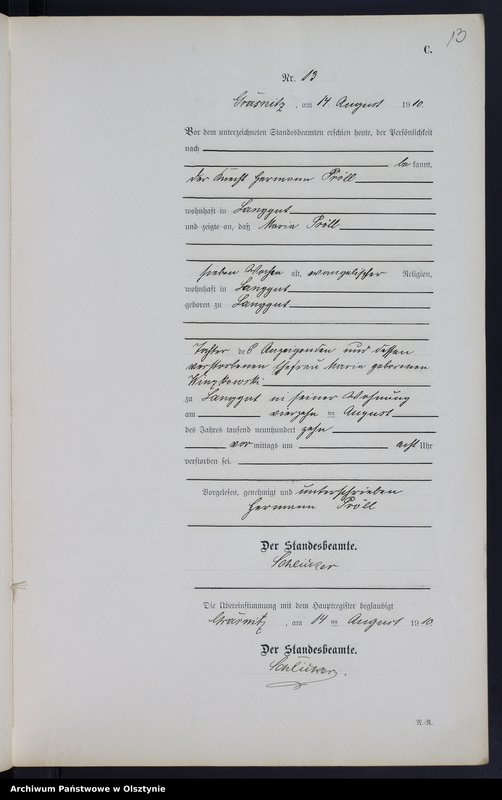 13
C.
Nr. 13
Gräsnitz, am 14. August 1910.
Vor dem unterzeichneten Standesbeamten erschien heute, der Persönlichkeit
nach
be kannt,
der Knecht Hermann Pröll
wohnhaft in Langgut
und zeigte an, daß Maria Pröll
sieben Wochen alt, evangelischer Religion,
wohnhaft in Langgut
geboren zu Langgut
Tochter des Anzeigenden und dessen
verstorbenen Ehefrau Maria geborenen
zu Langgut in seiner Wohnung
am vierzehn ten August
des Jahres tausend neunhundert zehn
vor mittags um acht Uhr
verstorben sei.
Vorgelesen, genehmigt und unterschrieben
Hermann Pröll
Der Standesbeamte.
Die Übereinstimmung mit dem Hauptregister beglaubigt
Gräsnitz, am 14 ten August 1910.
Der Standesbeamte.
R.-R.
Archiwum Państwowe w Olsztynie